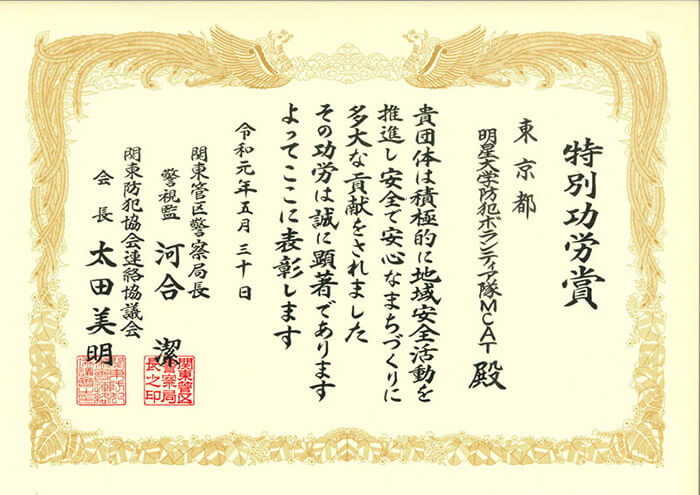 特別功労賞
東京都
明星大学防犯ボランティア隊MCAT 殿
貴団体は積極的に地域安全活動を
推進し安全で安心なまちづくりに
多大な貢献をされました
その功労は誠に顕著であります
よってここに表彰します
令和元年五月三十日
関東管区警察局長
警視監 河合 潔
関東管区警察局長之印
関東防犯協会連絡協議会
会長 太田美明